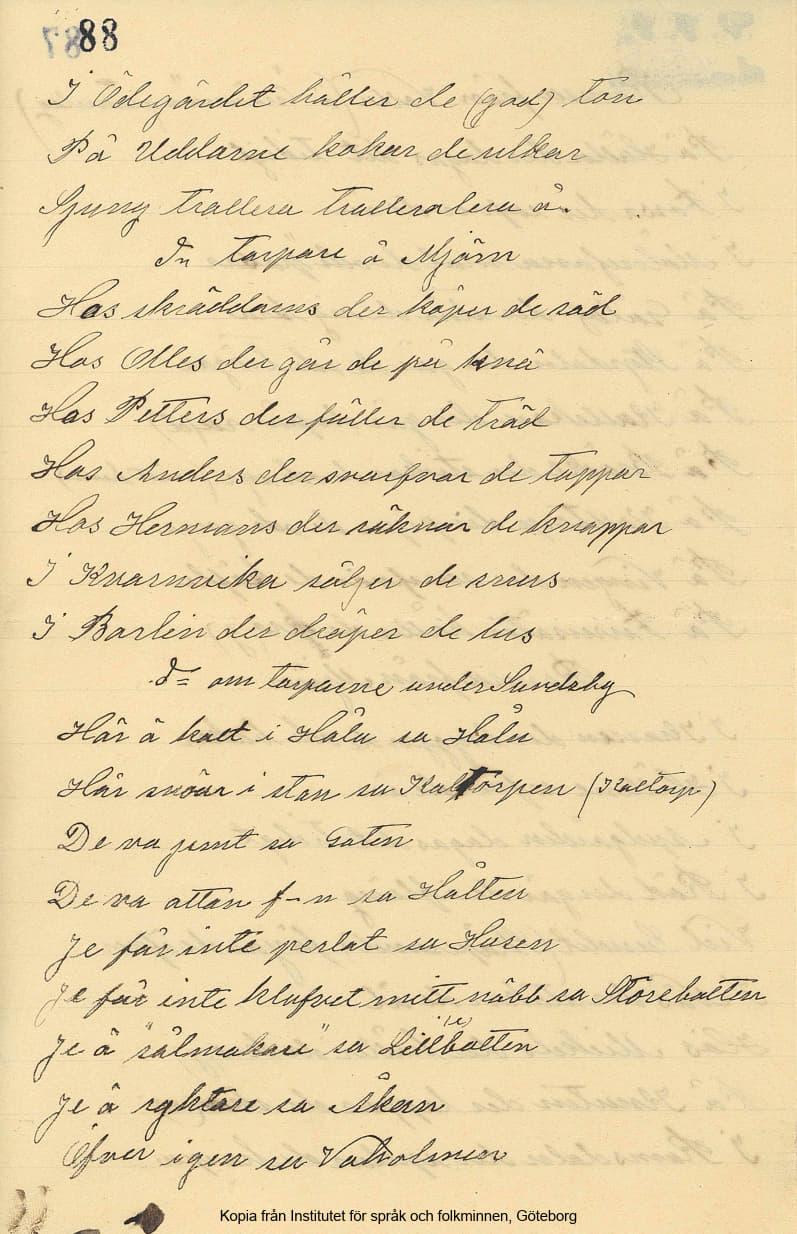 88
I Ödegärdet håller de (god) ton
På Uddarne kokar de ulkar
Sjung trallera tralleralera å.
Dn torpare å Mjörn
Hos skräddarns der köper de säd
Hos Olles der går de på knä
Hos Petters der fäller de träd
Hos Anders der svarfvar de tappar
Hos Hermans der räknar de knappar
I Kvarnvika säljer de snus
I Barlin der dräper de lus
D= om torparne under Sundsby
Här ä kalt i Håla sa Hålu
Här snöar i stan sa Kaltorpen (Kaltorp)
De va jemt sa Gaten
De va attan f-n sa Hålten
Je får inte perlat sa Husen
Je får inte klafvet mitt näbb sa Storebatten
Je ä "sålmakare" sa Lillbatten
Je ä ryktare sa Åkan
Öfver igen sa Valholmen
Kopia från Institutet för språk och folkminnen, Göteborg